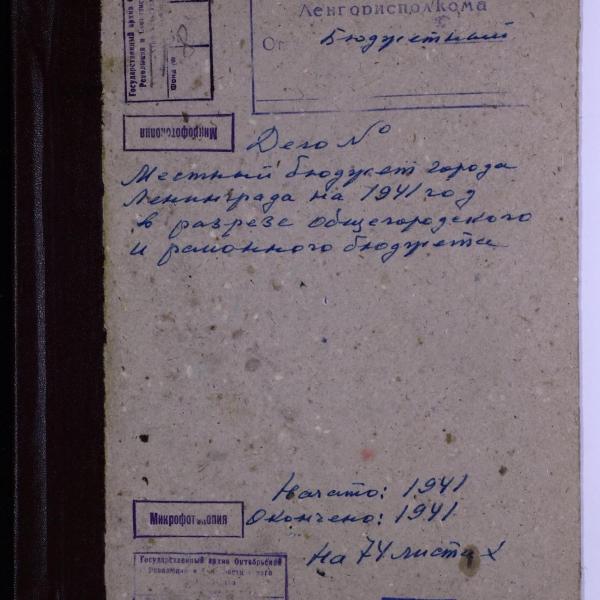 Государственный архив Октябрьской
Революции и
Фонд №
Ленгорисполкома
От
Бюджетный
Микрофотокопия
Дело №
Местный бюджет города
Ленинграда на 1941 год
в разрезе общегородского
и районного бюджета
Начато: 1941
Микрофотокопия
Окончено: 1941
На 74 листах
Государственный архив Октябрьской
Революции и